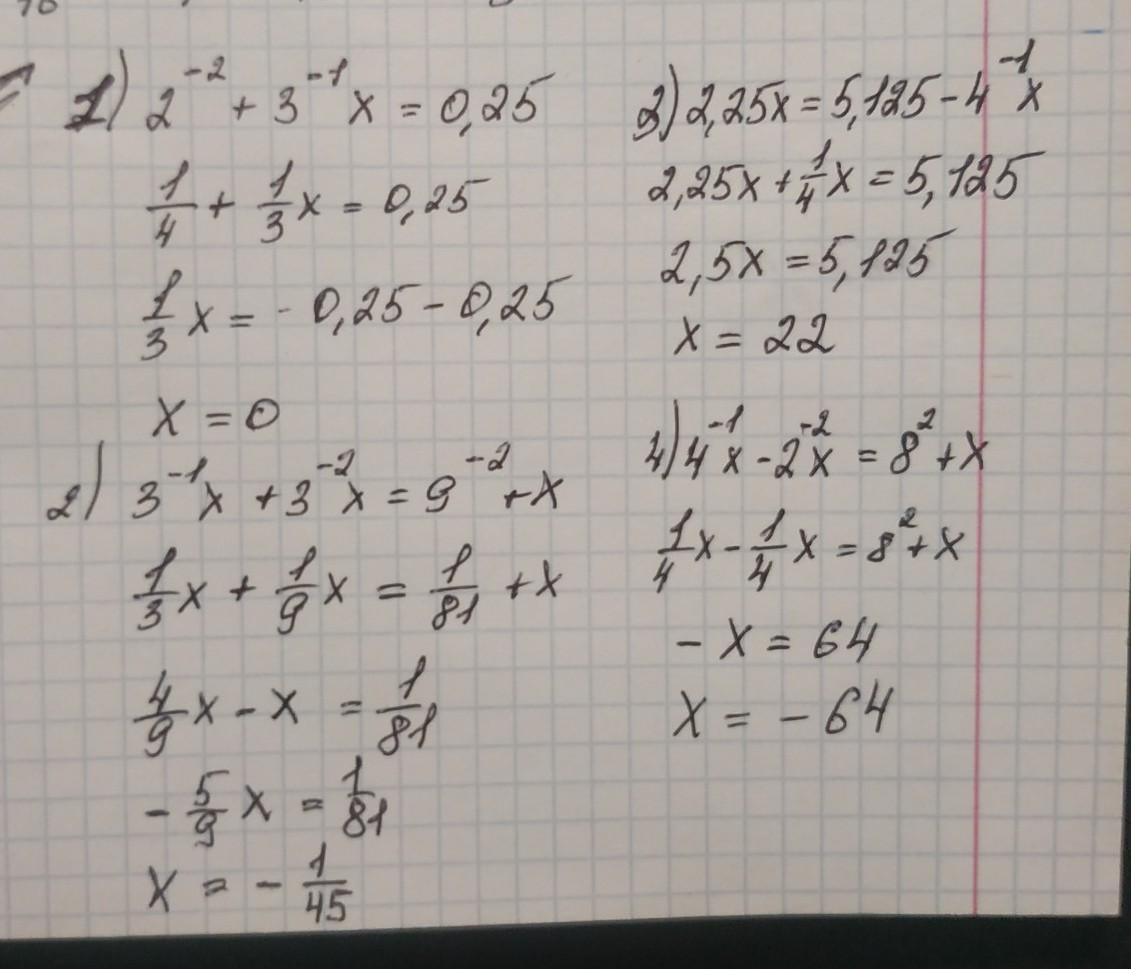 1) 2⁻² + 3⁻¹x = 0,25
1/4 + 1/3x = 0,25
1/3x = - 0,25 - 0,25
x = 0
2) 3⁻¹x + 3⁻²x = 9⁻² + x
1/3x + 1/9x = 1/81 + x
4/9x - x = 1/81
- 5/9x = 1/81
x = - 1/45
3) 2,25x = 5,125 - 4⁻¹x
2,25x + 1/4x = 5,125
2,5x = 5,125
x = 22
4) 4⁻¹x - 2⁻²x = 8² + x
1/4x - 1/4x = 8² + x
- x = 64
x = - 64